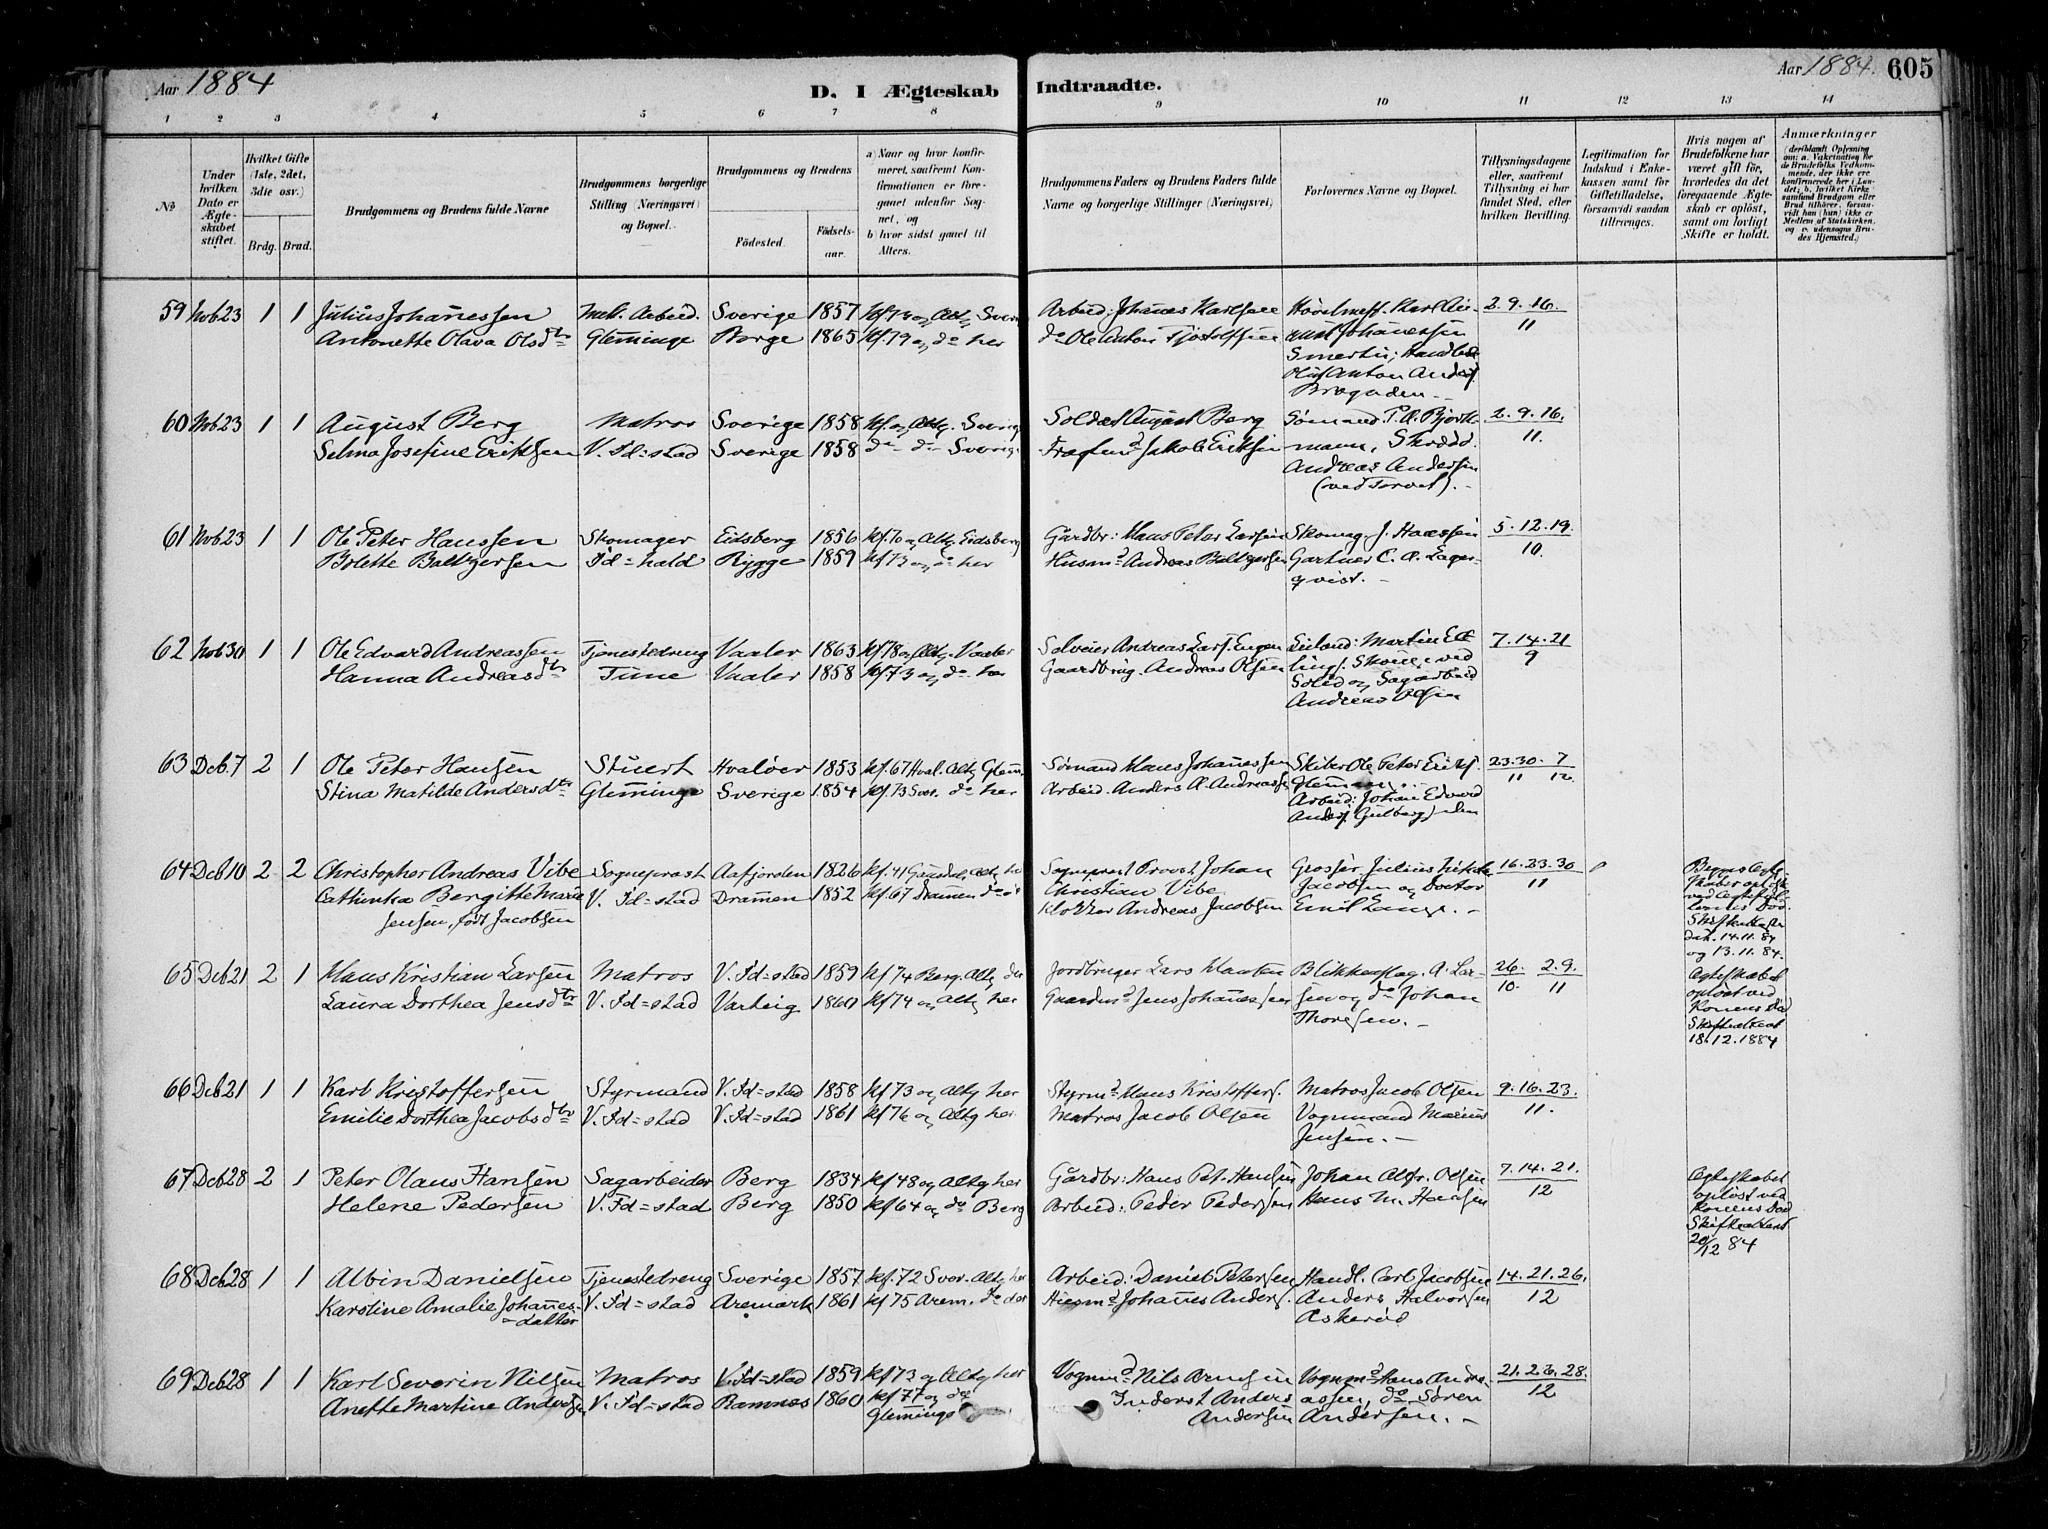 Aar 1884
D. I Ægteskab Indtraadte.
Aar 1884. 605
1 2 3 4 5 6 7 8 9 10 11 12 13 14
№
Under hvilken Dato er Ægteskabet stiftet.
Hvilket Gifte (1ste, 2det, 3die osv.)
Brdg. Brud.
Brudgommens og Brudens fulde Navne
Brudgommens borgerlige Stilling (Næringsvei) og Bopæl.
Brudgommens og Brudens
Fødested. Fødselsaar.
a) Naar og hvor konfirmeret, saafremt Konfirmationen er foregaaet udenfor Sognet, og
b) hvor sidst gaaet til Alters.
Brudgommens Faders og Brudens Faders fulde Navne og borgerlige Stillinger (Næringsvei)
Forlovernes Navne og Bopæl.
Tillysningsdagene eller, saafremt Tillysning ei har fundet Sted, efter hvilken Bevilling.
Legitimation for Indskud i Enkekassen samt for Giftetilladelse, forsaavidt saadan tiltrænges.
Hvis nogen af Brudefolkene har været gift før, hvorledes da det foregaaende Ægteskab er opløst, samt om lovligt Skifte er holdt.
Anmærkninger (deriblandt Oplysning om: a. Vakcination for de Brudefolks Vedkommende, der ikke ere konfirmerede her i Landet; b. hvilket Kirkesamfund Brudgom eller Brud tilhører, forsaavidt han (hun) ikke er Medlem af Statskirken, og c. udensogns Brudes Hjemsted.)
59 Nob 23 1 1 Julius Johanessen Mek. Arbeid. Sverige 1857 Arbeid. Johanes Karlsen 2. 9. 16.
Antonette Olava Olsdtr Glemminge Borge 1865 kf. 79 og do her do Ole Anton 11
Johanessen
Anton
60 Nob 23 1 1 August Berg Matros Sverige 1858 kf og Altg. Sverig Soldat August Berg Sømand P. A. Bjørk- 2. 9. 16.
Selma Josefine Eriksen V. Id=stad Sverige 1858 do do Sverig Jakob Eriksen mann, Skrædd. 11.
Andreas Andersen
(ved Torvet). -
61 Nob 23 1 1 Ole Peter Hanssen Skomager Eidsberg 1856 kf. 70 og Altg Eidsberg Gardbr: Hans Peter Larsen Skomag. J. Hanssen 5. 12. 19.
Bolette Baltzersen Id=hald Rygge 1859 kf 73 og do her Husmd Andreas Baltzersen Gartner C. A. Lager- 10.
qvist. -
62 Nob 30 1 1 Ole Edvard Andreassen Tjenestedreng Vaaler 1863 kf 78 og Altg Vaaler Selveier Andreas Lars. Engen Martin 7. 14. 21
Hanna Andreasdtr Tune Vaaler 1858 kf. 73 og do her Gaardbrug. Andreas Olsen ved 9
og Sagarbeid
Andreas Olsen
63 Deb. 7 2 1 Ole Peter Hansen Stuert Hvaløer 1853 kf. 67 Hval. Altg Glem. Sømand Hans Johanessen Ole Peter Eriks. 23. 30. 7
Stina Matilde Andersdtr Glemminge Sverige 1854 kf. 73 Sver. do her Arbeid. Anders A. Andreassen 11 12.
Arbeid: Johan Edvard
Anders.
64 Deb 10 2 2 Christopher Andreas Vibe Sogneprest Aafjorden 1826 kf. 41 Altg Sogneprest Provst Johan Julius 16. 23. 30
Cathinka Bergitte Marie V. Id=stad Drammen 1852 kf. 67 Drammen Christian Vibe Jacobsen og Doctor 11
Jensen, født Jacobsen Klokker Andreas Jacobsen Emil Lange. -
ved
Død.
dat. 14. 11. 84
og 13. 11. 84.
65 Deb 21 2 1 Hans Kristian Larsen Matros V. Id=stad 1859 kf 74 Berg. Altg der Jordbruger Lars Blikkenslag. A. Lar- 26. 2. 9.
Laura Dorthea Jensdtr V. Id=stad Varteig 1860 kf 74 og Altg her Gaardmd Jens Johanessen sen og do Johan 10. 11
Thoresen. -
Ægteskabet
opløst ved
Konens Død
Skifteattest
18. 12. 1884
66 Deb 21 1 1 Karl Kristoffersen Styrmand V. Id=stad 1858 kf 73 og Altg her Styrmd Hans Kristoffers. Matros Jacob Olsen 9. 16. 23.
Emilie Dorthea Jacobsdtr V. Id=stad V. Id=stad 1861 kf 76 og Altg her Matros Jacob Olsen Vognmand Marius 11.
Jensen. -
67 Deb 28 2 1 Peter Olaus Hansen Sagarbeider Berg 1834 kf 48 og Altg her Gårdbr: Hans Pet. Hansen Johan Alfr. Olsen 7. 14. 21.
Helene Pedersen V. Id=stad Berg 1850 kf 64 og do Berg Arbeid: Peder Pedersen Hans M. Hansen 12
Ægteskabet
opløst ved
Konens Død
Skifteattest
20/12 84
68 Deb 28 1 1 Albin Danielsen Tjenestedreng Sverige 1857 kf. 72 Sver. Altg her Arbeid: Daniel Petersen Handl. Carl Jacobsen 14. 21. 26.
Karstine Amalie Johannes- V. Id=stad Aremark 1861 kf 75 Arem. do der Husmd Johanes Anders. Anders Halvorsen 12
datter Askerød
69 Deb 28 1 1 Karl Severin Nilsen Matros V. Id=stad 1859 kf 73 og Altg her Vognmd Nils Arnesen Vognmd Hans Andre- 21. 26. 28.
Anette Martine Andersen V. Id=stad Ramnes 1860 kf 77 og do Inderst Anders assen, do Søren 12
Glemminge Andersen Andersen. -